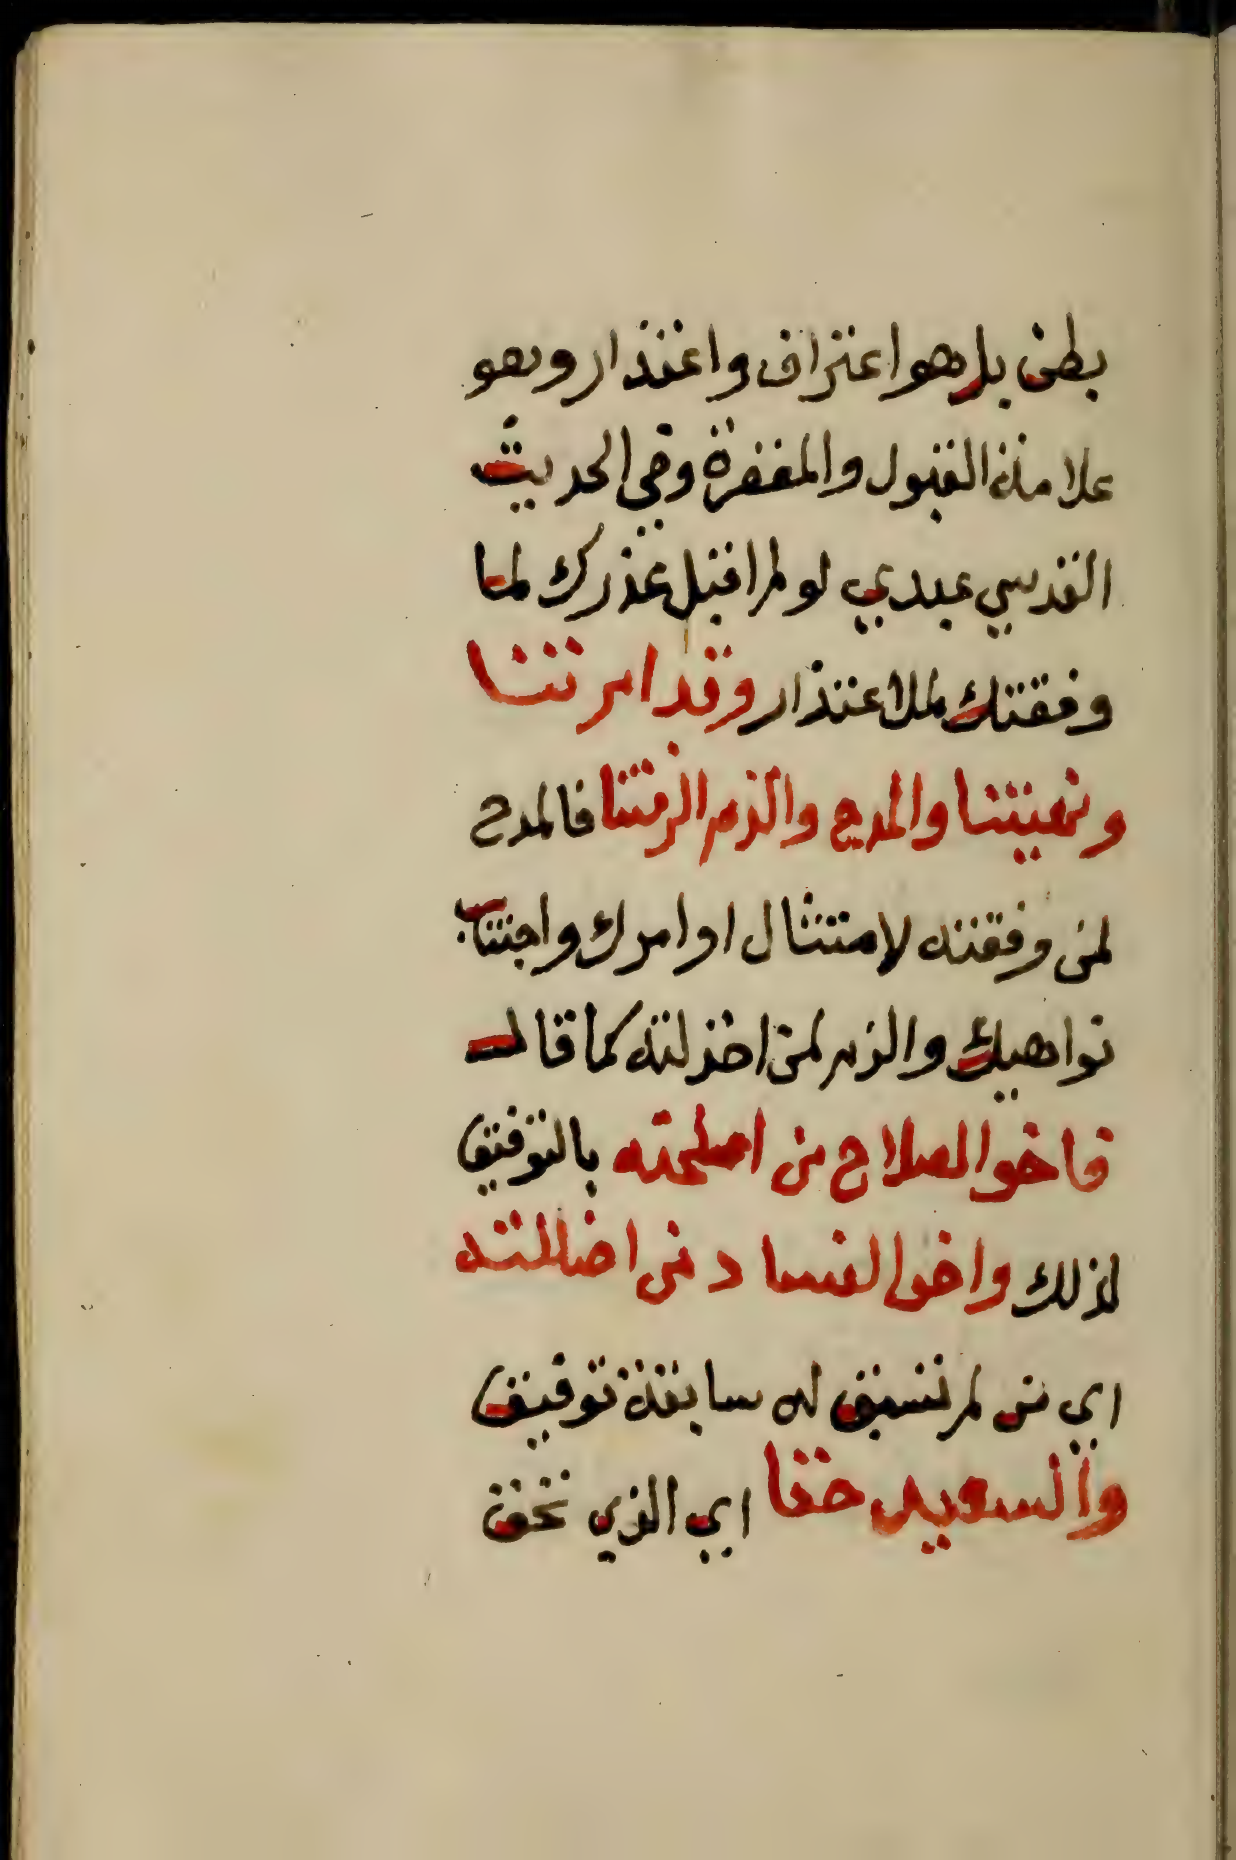 يظن بل هو اعتراف واعتذار وهو
علامة القبول والمغفرة وفي الحديث
القدسي عبدي لو لم اقبل عذرك لما
وفقتك للاعتذار وقد امرتنا
ونهيتنا والمدح والذم الزمتنا فالمدح
لمن وفقته لامتثال اوامرك واجتناب
نواهيك والذم لمن اخذلته كما قال
فاخو الصلاح من اصلحته بالتوفيق
لذلك واخو الفساد من اضللته
اي من لم تسبق له سابقة توفيق
والسعيد حقا اي الذي تحقق